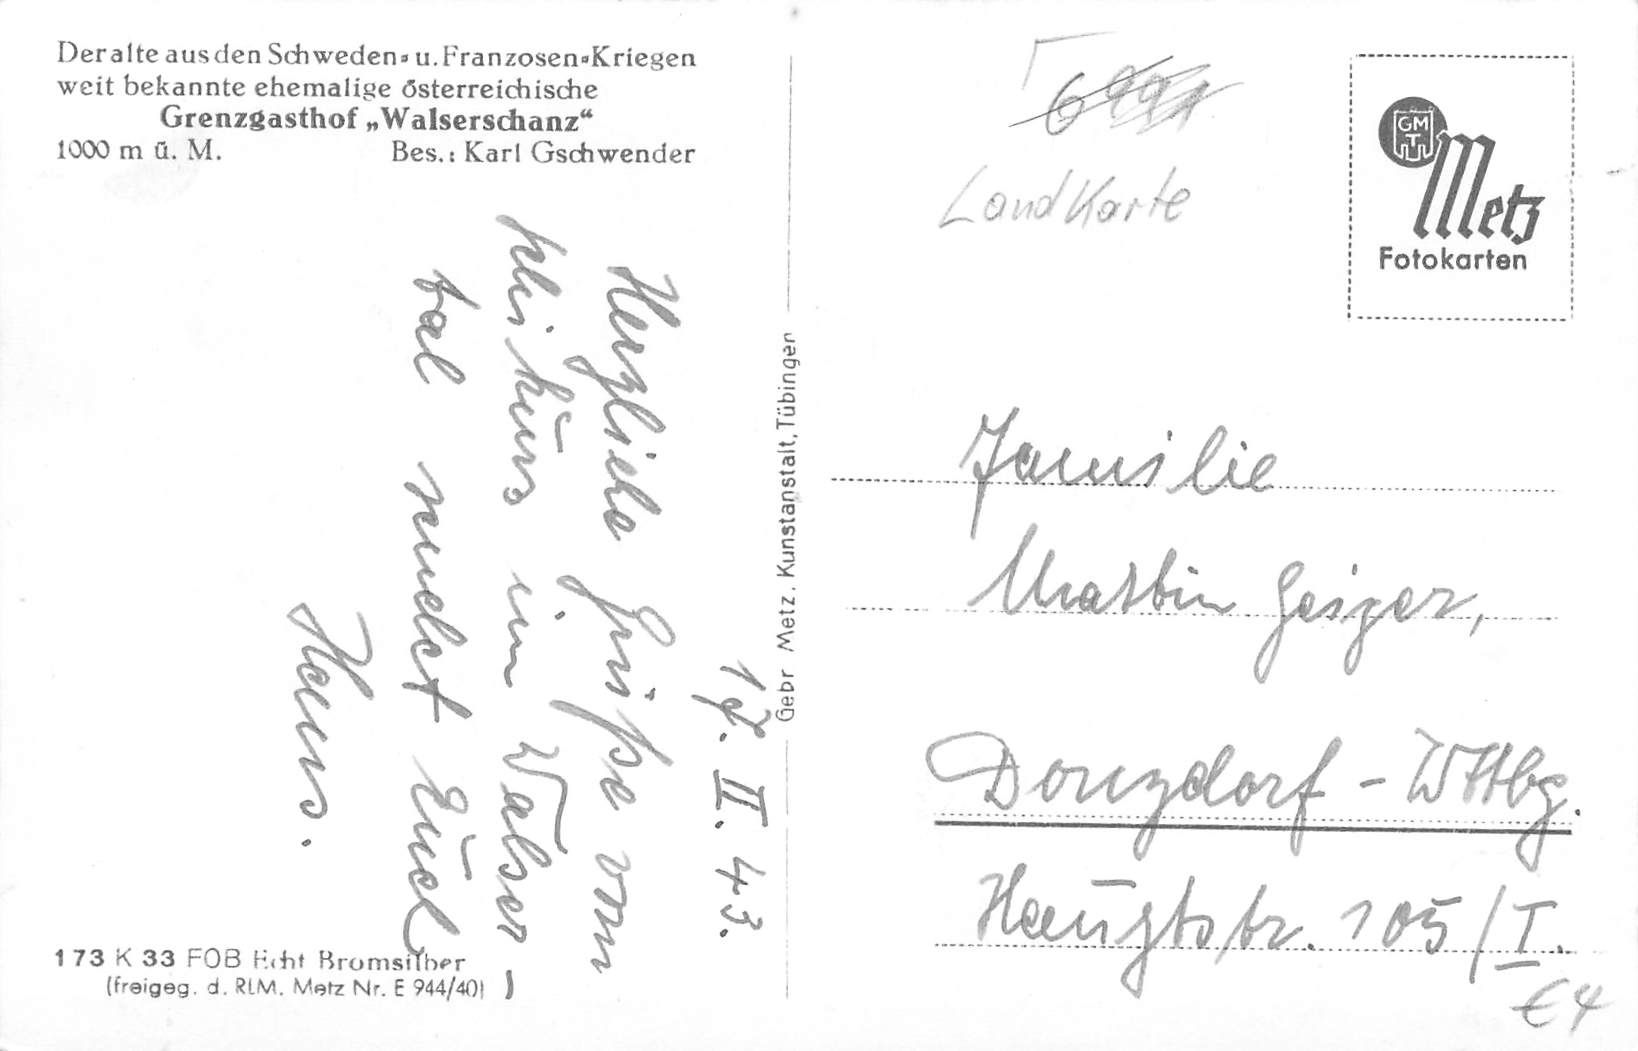 Der alte aus den Schweden- u. Franzosen-Kriegen
weit bekannte ehemalige österreichische
Grenzgasthof „Walserschanz“
1000 m ü. M. Bes.: Karl Gschwender
17. II. 43.
Herzliche Grüße vom
Skikurs im Walser
tal sendet Euch
Hans.
173 K 33 FOB Echt Bromsilber
(freigeg. d. RLM. Metz Nr. E 944/40)
Gebr Metz. Kunstanstalt, Tübingen
Landkarte
GM
T
Metz
Fotokarten
Familie
Martin Geiger,
Donzdorf - Wttbg.
Hauptstr. 105/I.
€ 4